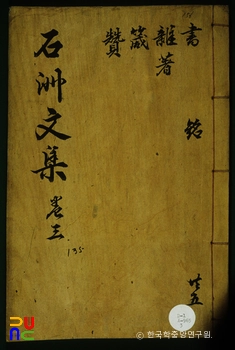 書 銘
雜著
箴
贊
石洲文集 卷三
135
© 한국학중앙연구원